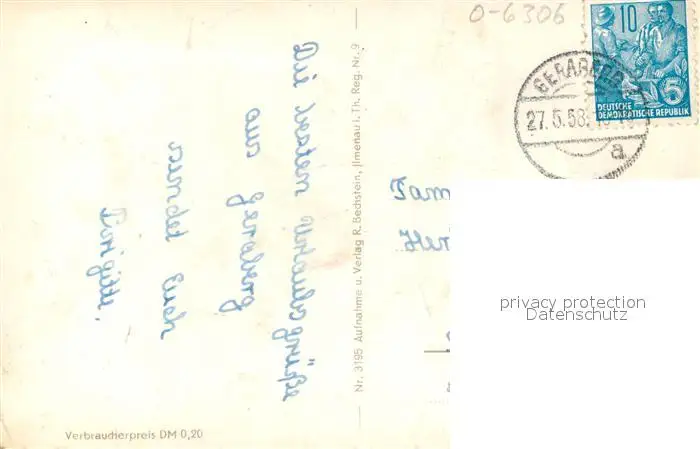 O-6306
10
5
DEUTSCHE
DEMOKRATISCHE REPUBLIK
GERABERG
27.5.58
a
Die besten Urlaubsgrüße
aus Geraberg
sendet Euch
Brigitte.
Nr. 3195 Aufnahme u. Verlag R. Bechstein, Jlmenau i. Th. Reg. Nr. 9
Fam
Her
privacy protection
Datenschutz
Verbraucherpreis DM 0,20